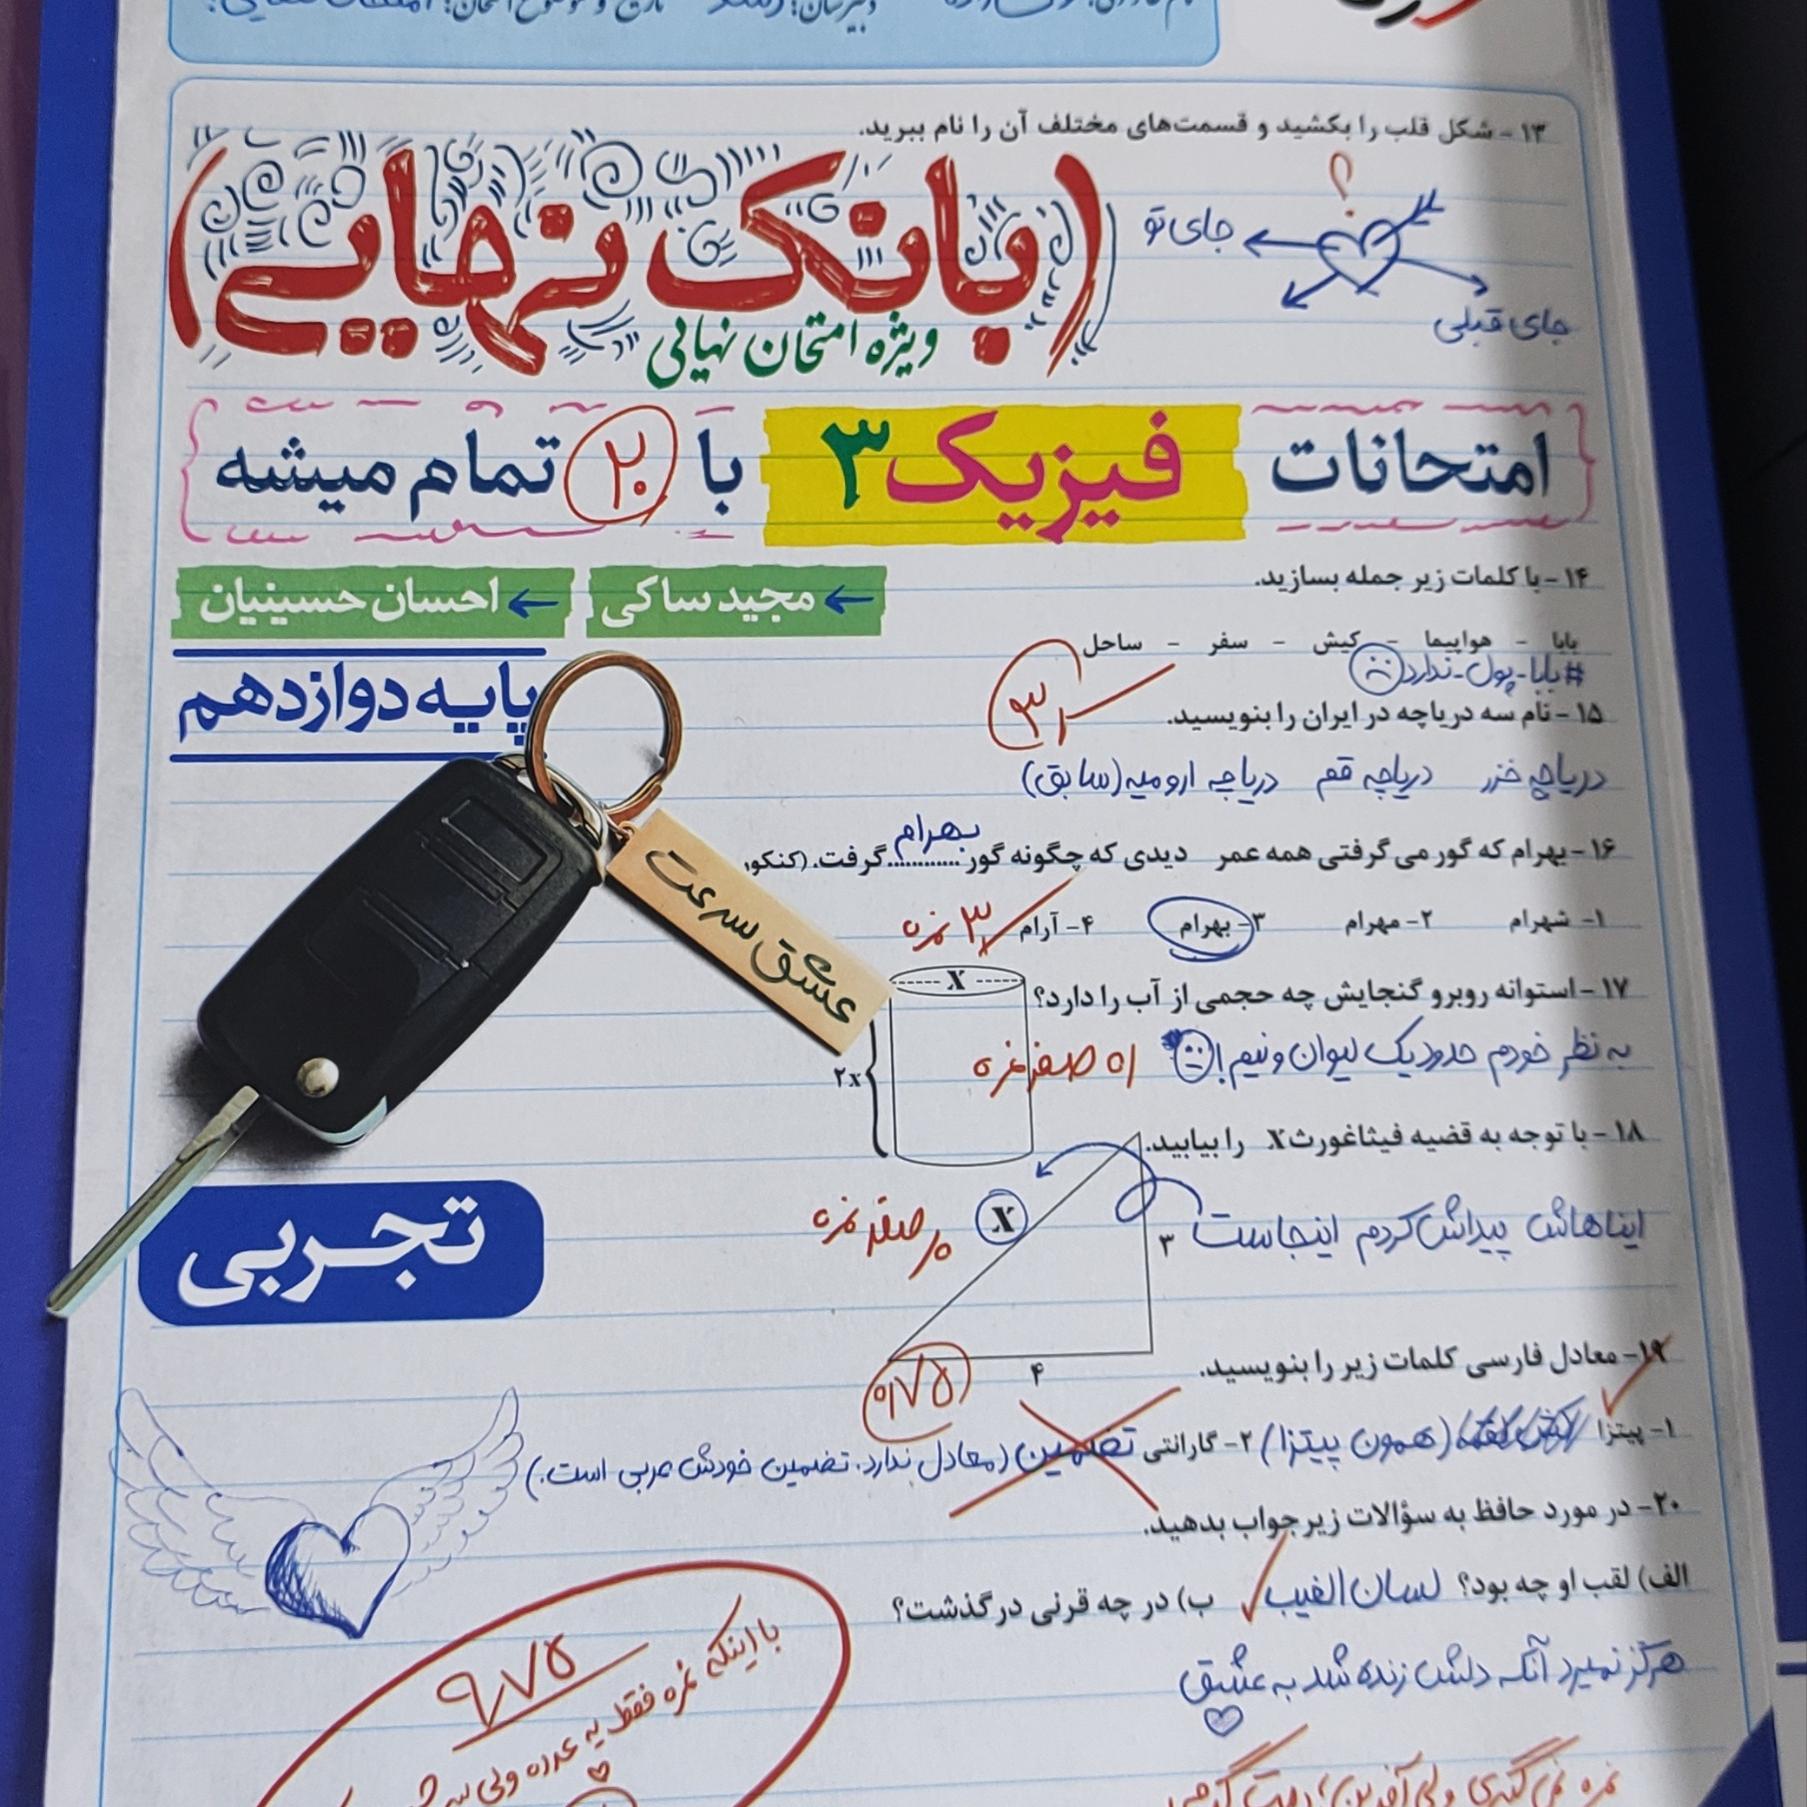 ۱۳- شکل قلب را بکشید و قسمت‌های مختلف آن را نام ببرید.
؟
جای تو
جای قبلی
(بانک نهایی)
ویژه امتحان نهایی
امتحانات فیزیک ۳ با ۲۰ تمام میشه
مجید ساکی
احسان حسینیان
۱۴- با کلمات زیر جمله بسازید.
بابا - هواپیما - کیش - سفر - ساحل
#بابا-پول-ندارد
پایه دوازدهم
۱۵- نام سه دریاچه در ایران را بنویسید.
دریاچه خزر دریاچه قم دریاچه ارومیه (سابق)
۱۶- بهرام که گور می گرفتی همه عمر دیدی که چگونه گور بهرام گرفت. (کنکور
۱- شهرام ۲- مهرام ۳- بهرام ۴- آرام
نمره
عشق سرعت
۱۷- استوانه روبرو گنجایش چه حجمی از آب را دارد؟
X
۲x
به نظر خودم حدود یک لیوان و نیم!
صفر نمره
۱۸- با توجه به قضیه فیثاغورث X را بیابید.
ایناهاش پیداش کردم اینجاست
X
۳
۴
صفر نمره
تجربی
۱۹- معادل فارسی کلمات زیر را بنویسید.
۰/۷۵
۱- پیتزا (همون پیتزا) ۲- گارانتی تضمین (معادل ندارد. تضمین خودش عربی است.)
۲۰- در مورد حافظ به سؤالات زیر جواب بدهید.
الف) لقب او چه بود؟ لسان الغیب ب) در چه قرنی درگذشت؟
هرگز نمیرد آنکه دلش زنده شد به عشق
۹/۷۵
با اینکه نمره فقط یه عدده ولی